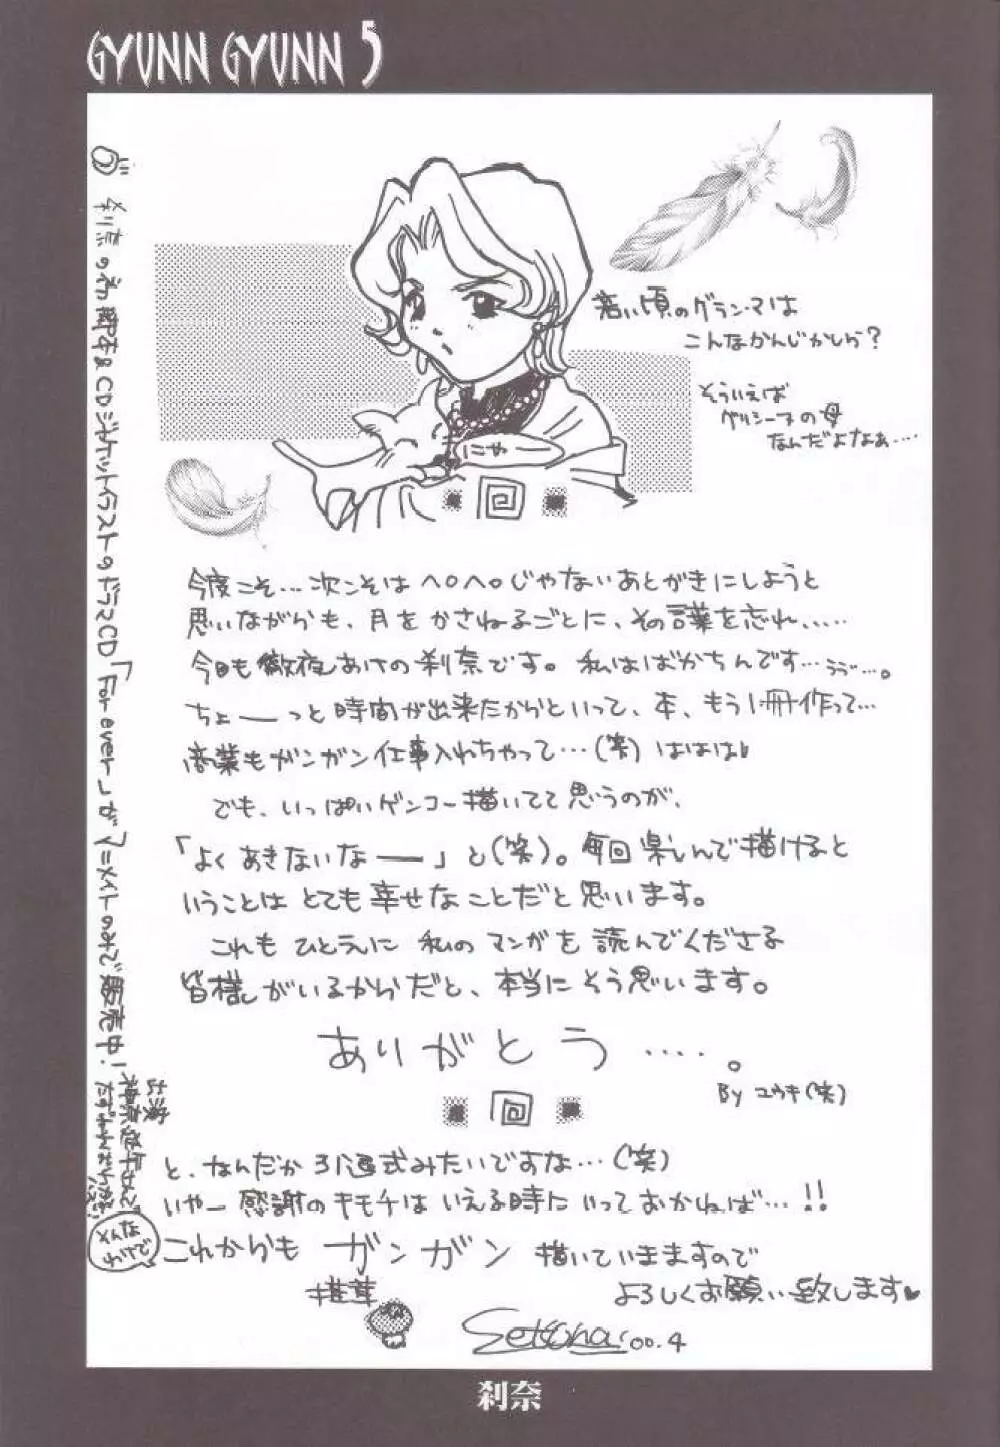 GYUNN GYUNN 5
若い頃のグラン・マは
こんなかんじかしら?
そういえば
グリシーヌの母
なんだよなぁ…
にゃー
今度こそ…次こそはヘロヘロじゃないあとがきにしようと
思いながらも、月をかさねるごとに、その言葉を忘れ、……
今日も徹夜あけの刹奈です。私はばかちんです…ゔゔ…。
ちょーっと時間が出来たからといって、本、もう1冊作って…
商業もガンガン仕事入れちゃって…(笑)ははは
でも、いっぱいゲンコー描いてて思うのが、
「よくあきないなー」と(笑)。毎回楽しんで描けると
いうことはとても幸せなことだと思います。
これもひとえに私のマンガを読んでくださる
皆様がいるからだと、本当にそう思います。
ありがとう……。
By ユウキ(笑)
と、なんだか引退式みたいですな…(笑)
いやー感謝のキモチはいえる時にいっておかねば…!!
これからもガンガン描いていきますので
よろしくお願い致します♥
椎茸
Setsuna '00.4
刹奈の初脚本&CDジャケットイラストのドラマCD「For ever」がアニメイトのみで販売中!
出演
刹奈